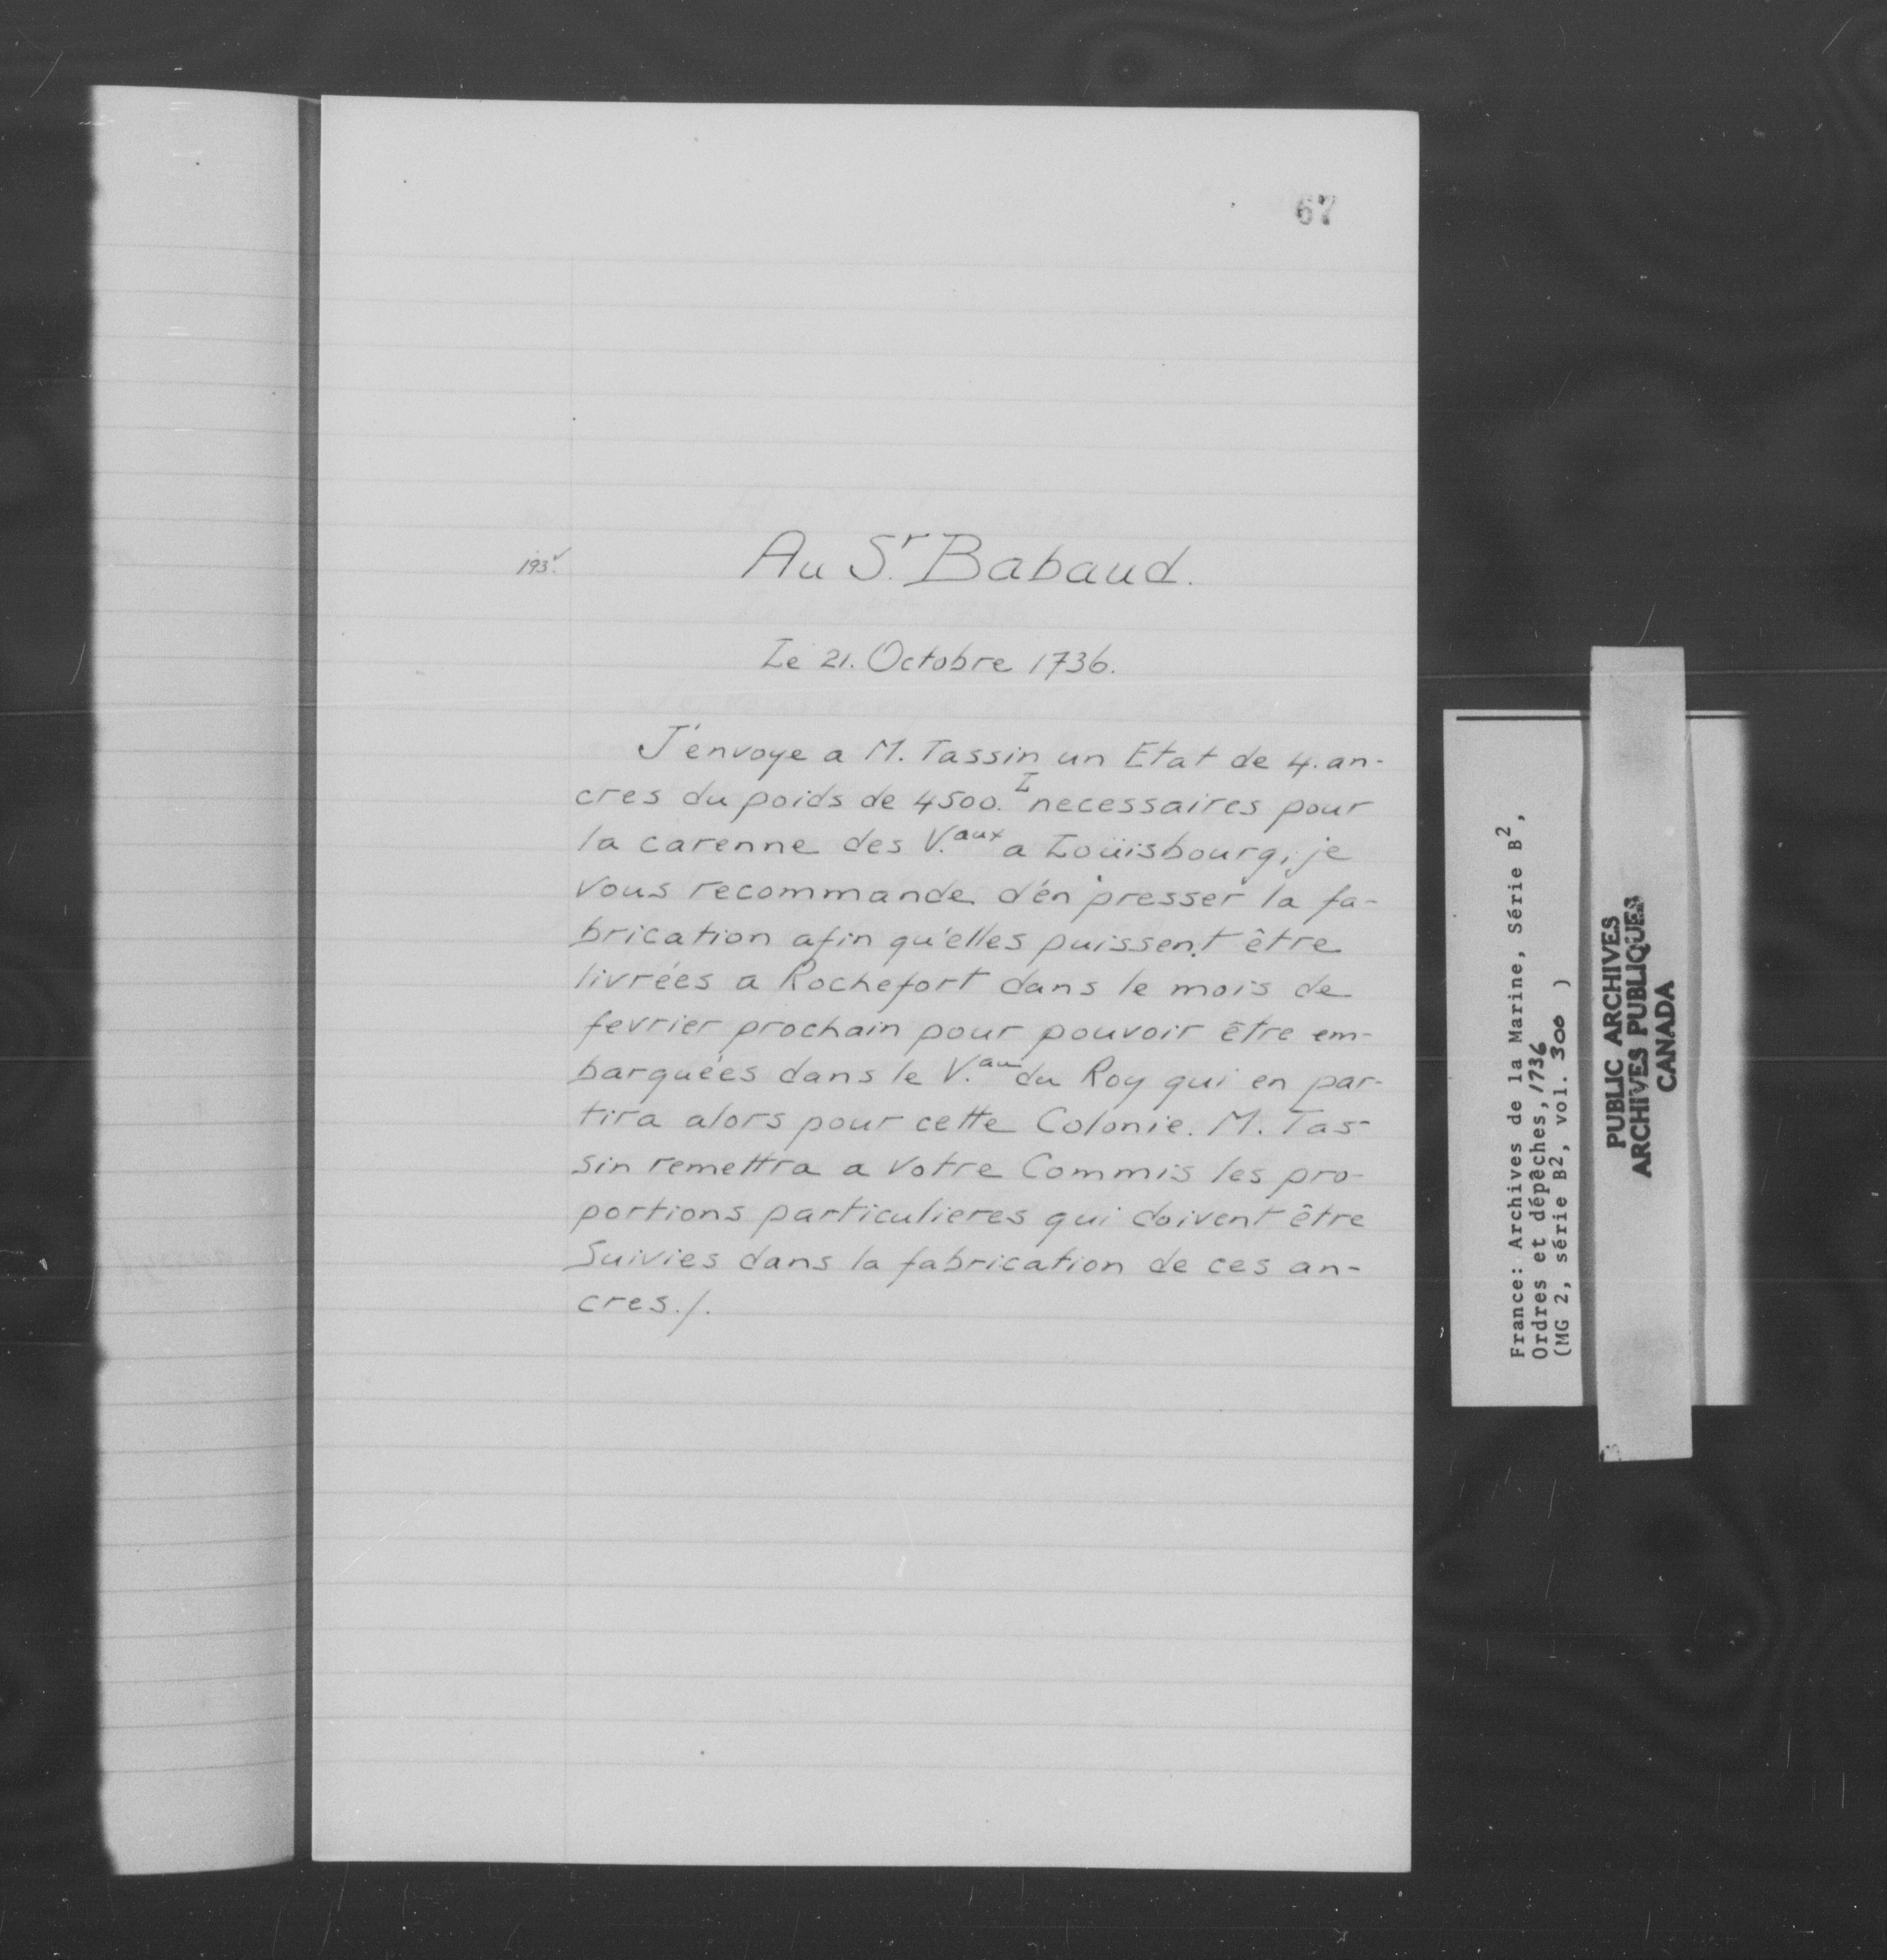 67
193.v
Au S.r Babaud.
Le 21. Octobre 1736.
J'envoye a M. Tassin un Etat de 4. an-
cres du poids de 4500.L necessaires pour
la carenne des V.aux a Loüisbourg, je
vous recommande d'én presser la fa-
brication afin qu'elles puissent être
livrées a Rochefort dans le mois de
fevrier prochain pour pouvoir être em-
barquées dans le V.au du Roy qui en par-
tira alors pour cette Colonie. M. Tas-
sin remettra a votre Commis les pro-
portions particulieres qui doivent être
Suivies dans la fabrication de ces an-
cres./.
France: Archives de la Marine, Série B2,
Ordres et dépêches, 1736
(MG 2, série B2, vol. 300 )
PUBLIC ARCHIVES
ARCHIVES PUBLIQUES
CANADA